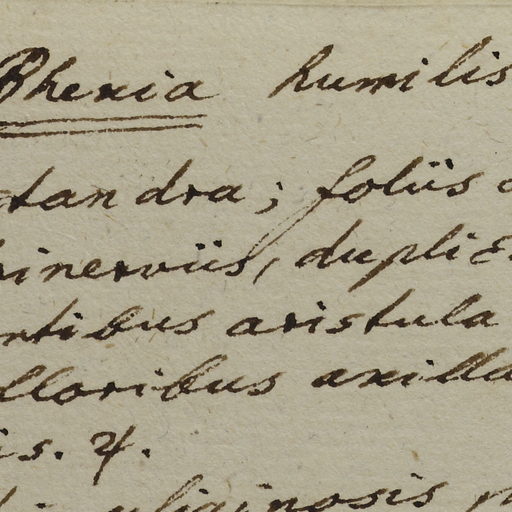 Rhexia humilis
tandra; foliis
rinerviis, dupli
ntibus aristula
lloribus axilla
is. ♃.
uliginosis